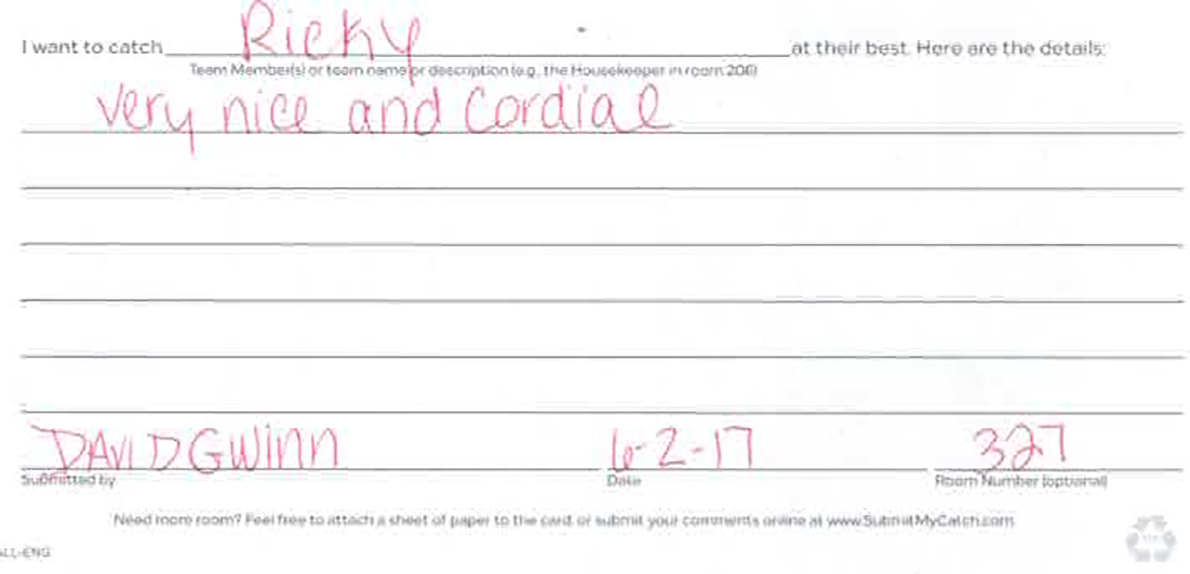 I want to catch Ricky at their best. Here are the details:
Team Member(s) or team name or description (e.g., the Housekeeper in room 206)
very nice and Cordial
DAVID GWINN 6-2-17 327
Submitted by Date Room Number (optional)
Need more room? Feel free to attach a sheet of paper to the card or submit your comments online at www.SubmitMyCatch.com
ALL-ENG